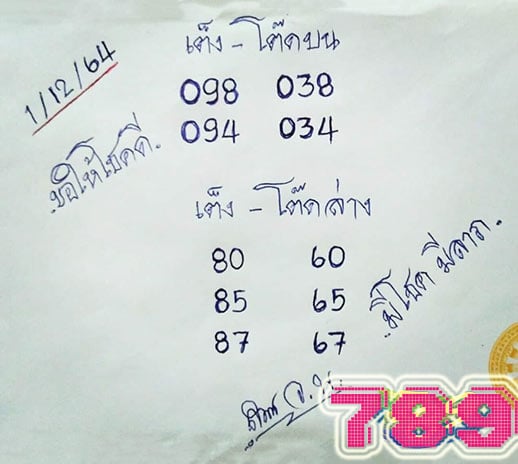 1/12/64
เต็ง - โต๊ดบน
098 038
094 034
ขอให้โชคดี.
เต็ง - โต๊ดล่าง
80 60
85 65
87 67
มีโชค มีลาภ.
789